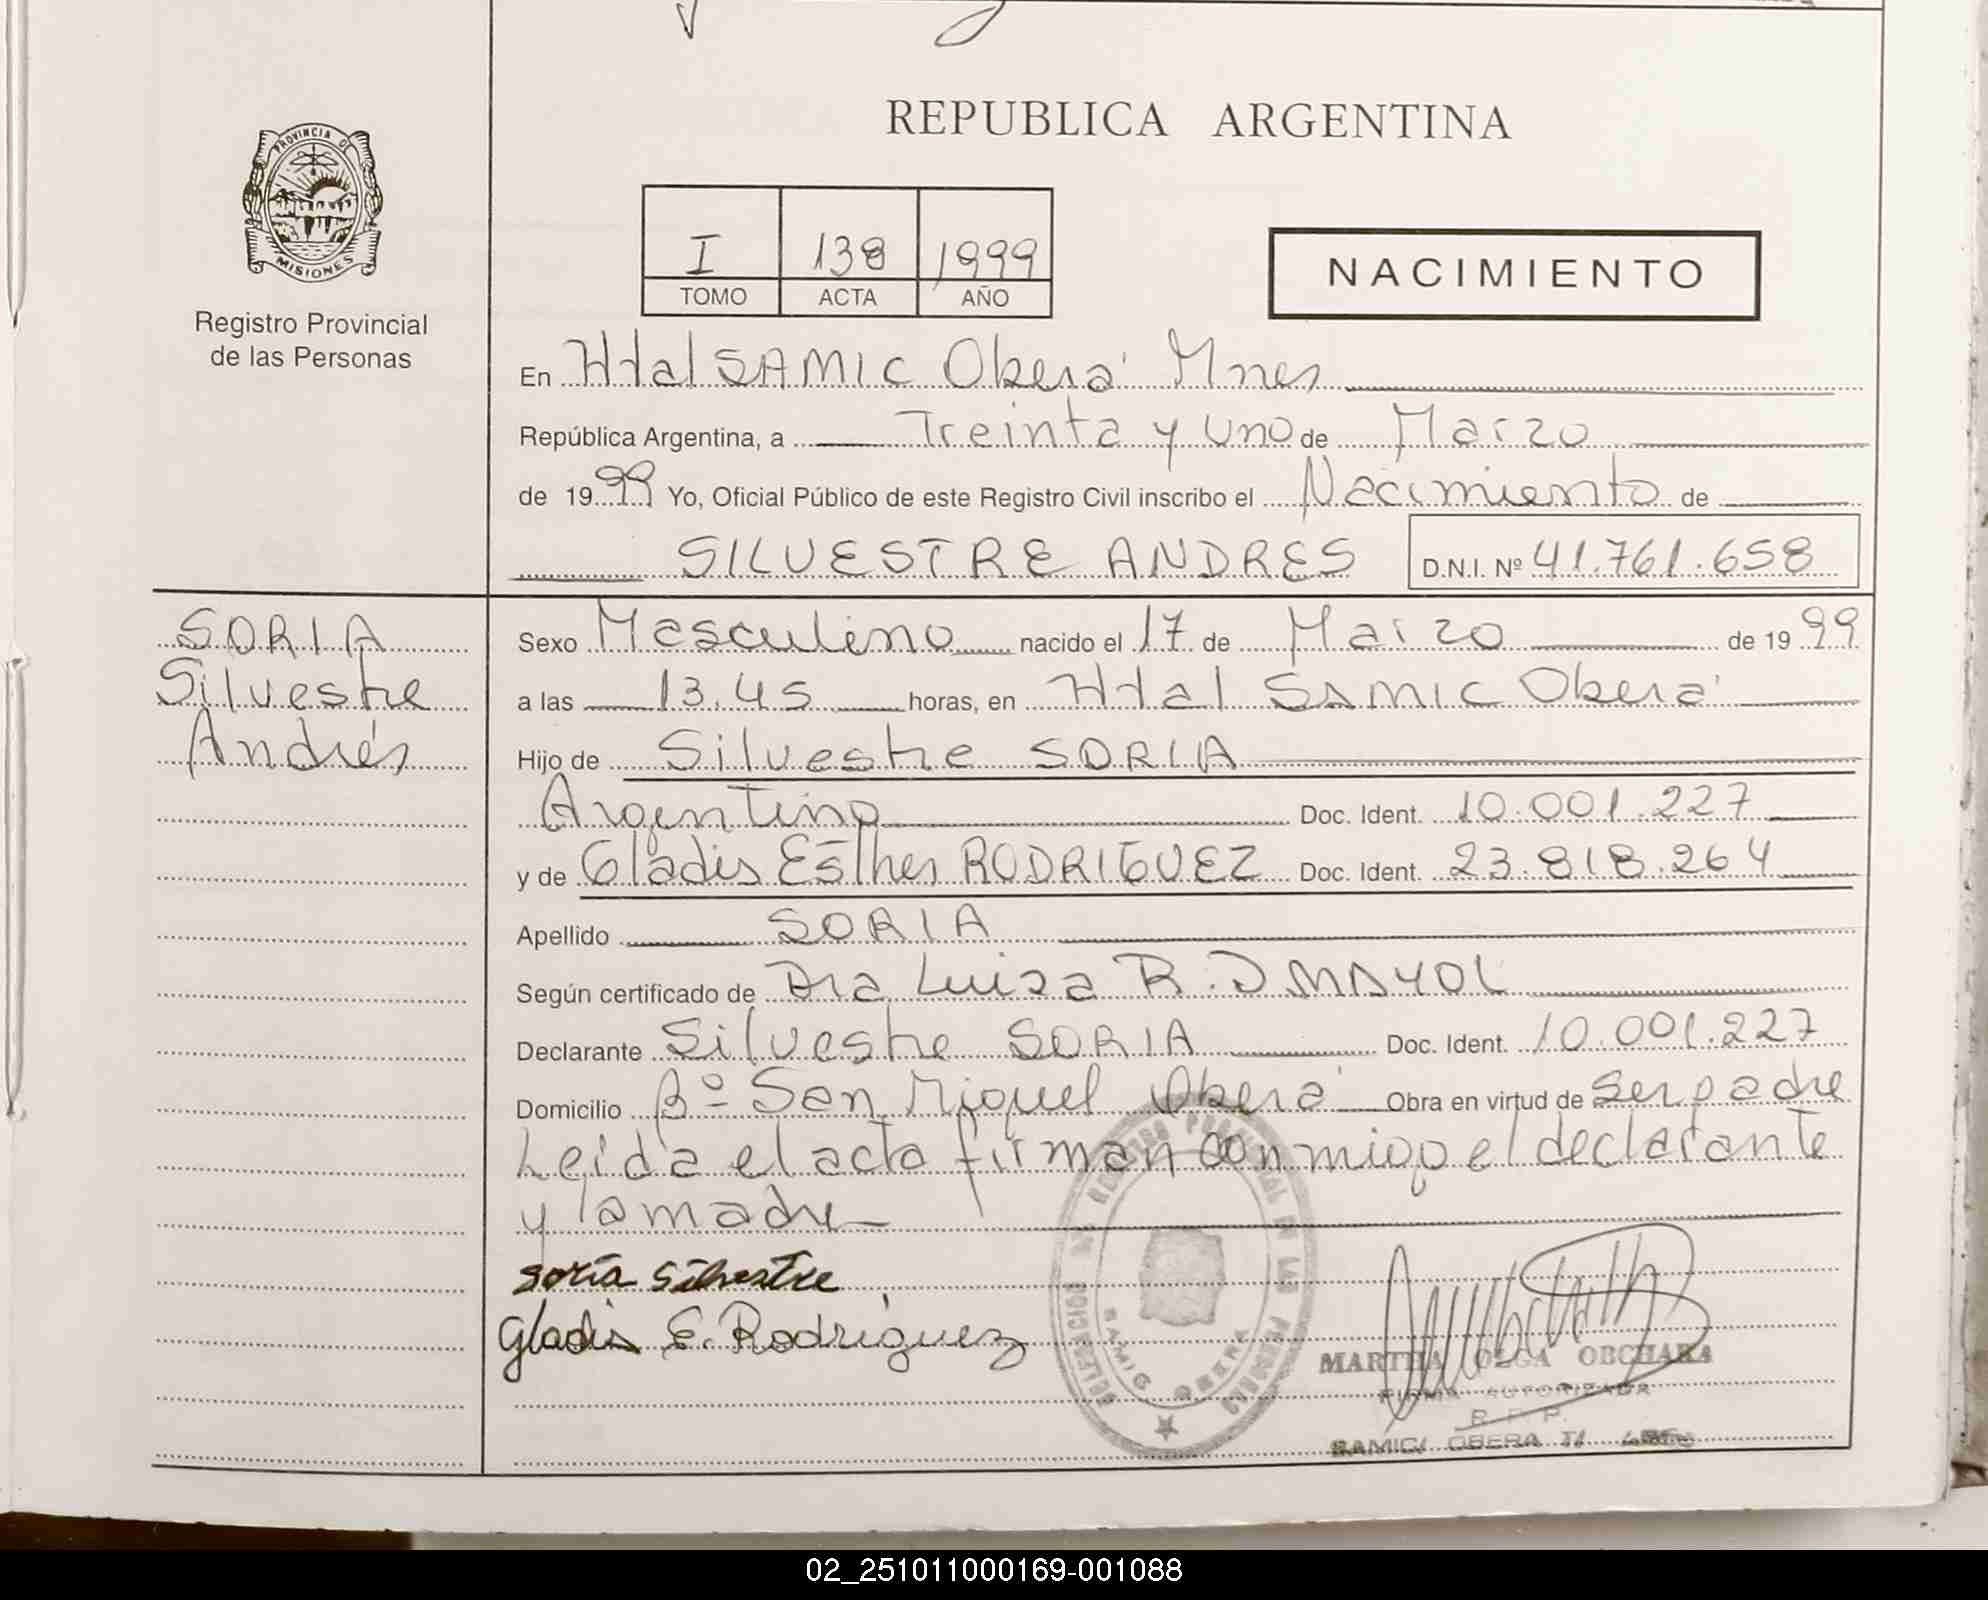 REPUBLICA ARGENTINA
PROVINCIA DE MISIONES
Registro Provincial
de las Personas
I 138 1999
TOMO ACTA AÑO
NACIMIENTO
En Htal SAMIC Oberá Mnes
República Argentina, a Treinta y Uno de Marzo
de 1999 Yo, Oficial Público de este Registro Civil inscribo el Nacimiento de
SILVESTRE ANDRES D.N.I. Nº 41.761.658
SORIA
Silvestre
Andrés
Sexo Masculino nacido el 17 de Marzo de 1999
a las 13.45 horas, en Htal SAMIC Oberá
Hijo de Silvestre SORIA
Argentino Doc. Ident. 10.001.227
y de Gladis Esther RODRIGUEZ Doc. Ident. 23.818.264
Apellido SORIA
Según certificado de Dra Luisa R. D MAYOL
Declarante Silvestre SORIA Doc. Ident. 10.001.227
Domicilio Bº San Miguel Oberá Obra en virtud de ser padre
Leida el acta firman conmigo el declarante
y la madre
soria silvestre
Gladis E. Rodríguez
PROVINCIAL DE LAS PERSONAS
SAMIC OBERA
MARTHA OLGA OBCHARA
FIRMA AUTORIZADA
R. P. P.
SAMIC/ OBERA
02_251011000169-001088